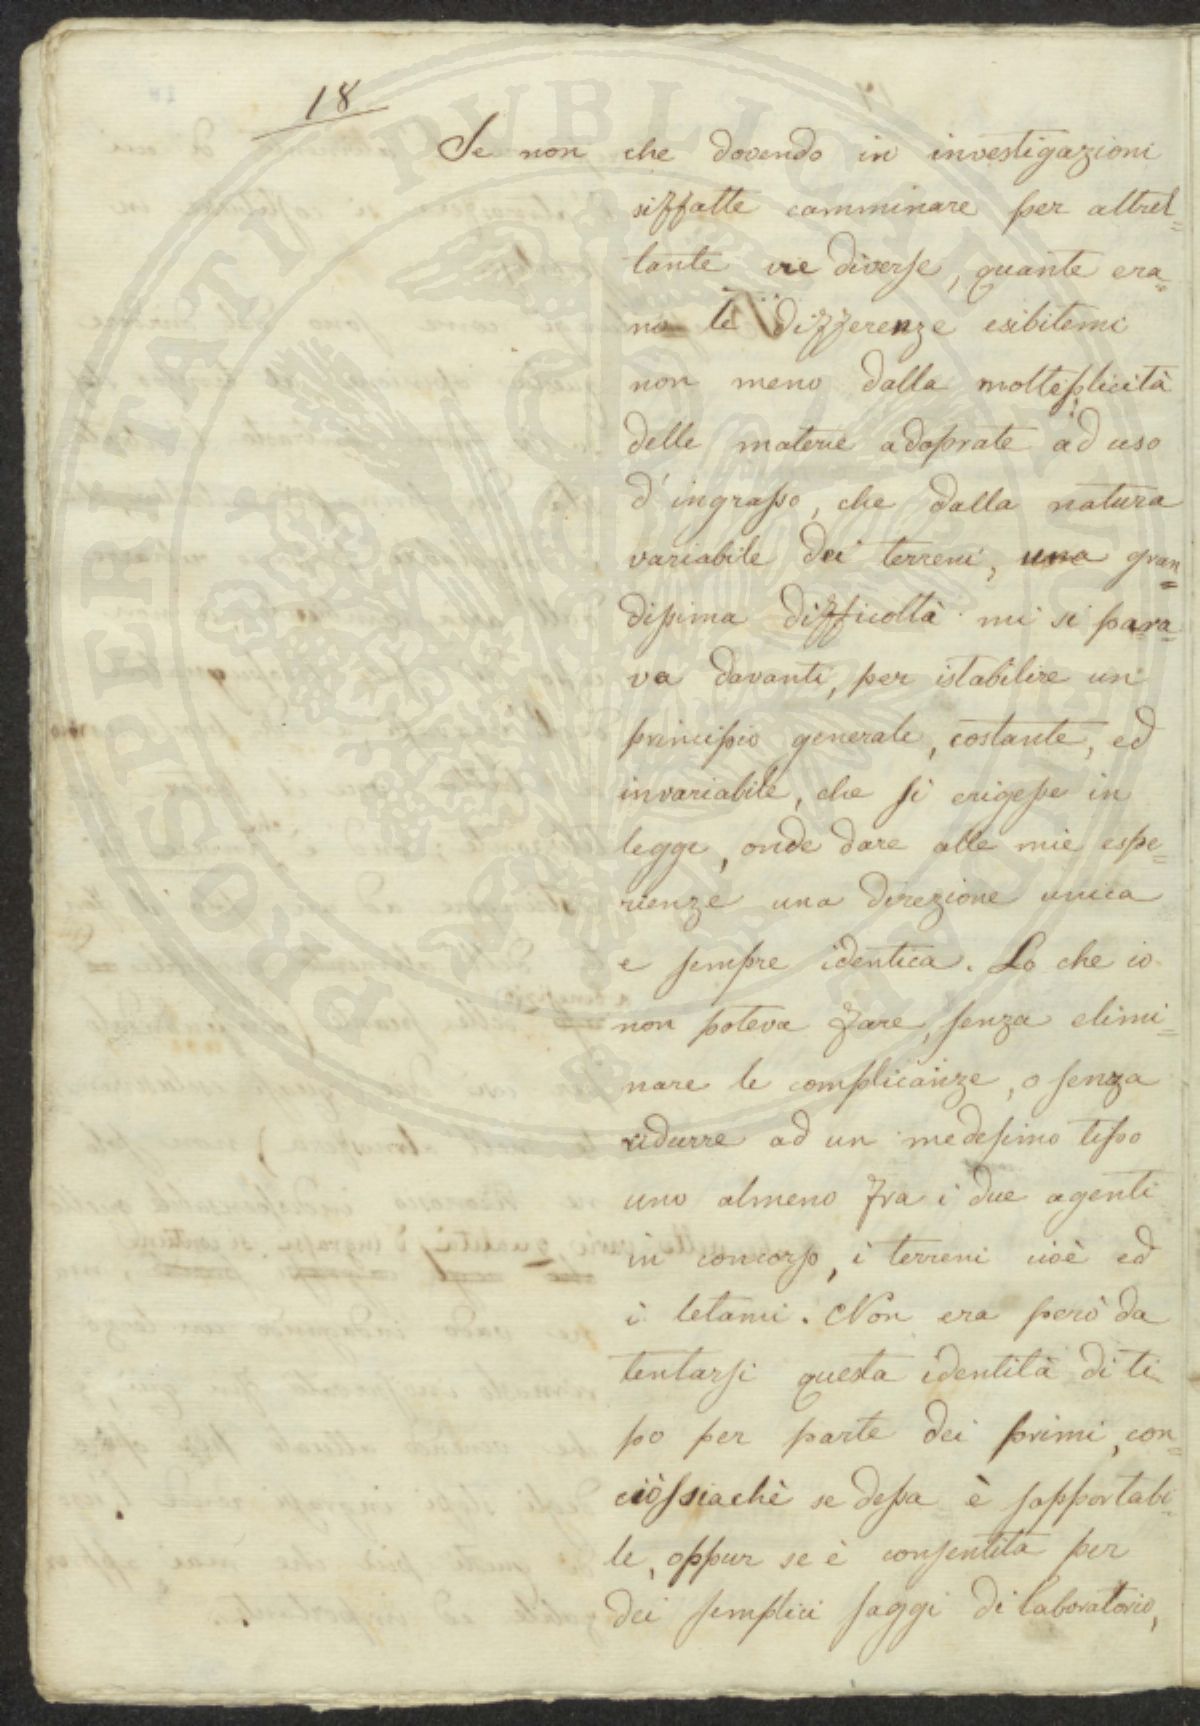 18
Se non che dovendo in investigazioni
siffatte camminare per altret=
tante vie diverse, quante era=
no le differenze esibitemi
non meno dalla molteplicità
delle materie adoprate ad uso
d'ingrasso, che dalla natura
variabile dei terreni, una gran=
dissima difficoltà mi si para=
va davanti, per istabilire un
principio generale, costante, ed
invariabile, che si erigesse in
legge, onde dare alle mie espe=
rienze una direzione unica
e sempre identica. Lo che io
non poteva fare, senza elimi=
nare le complicanze, o senza
ridurre ad un medesimo tipo
uno almeno fra i due agenti
in concorso, i terreni cioè ed
i letami. Non era però da
tentarsi questa identità di ti=
po per parte dei primi, con=
ciòssiachè se dessa è sopportabi=
le, oppur se è consentita per
dei semplici saggi di laboratorio,
PROSPERITATI PUBLICAE